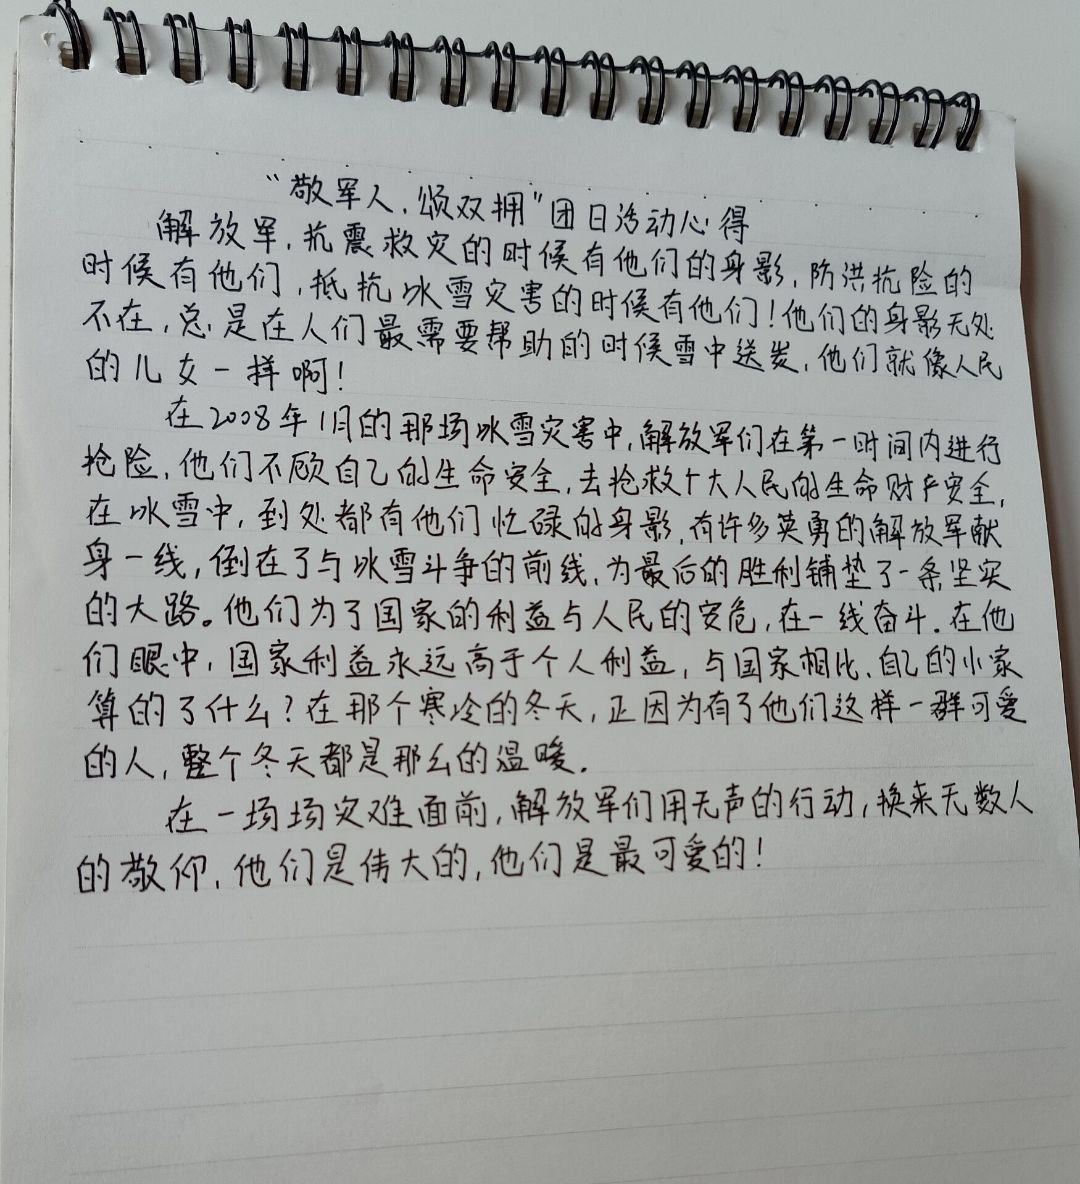 “敬军人,颂双拥”团日活动心得
解放军,抗震救灾的时候有他们的身影,防洪抗险的
时候有他们,抵抗冰雪灾害的时候有他们!他们的身影无处
不在,总是在人们最需要帮助的时候雪中送炭,他们就像人民
的儿女一样啊!
在2008年1月的那场冰雪灾害中,解放军们在第一时间内进行
抢险,他们不顾自己的生命安全,去抢救个大人民的生命财产安全,
在冰雪中,到处都有他们忙碌的身影,有许多英勇的解放军献
身一线,倒在了与冰雪斗争的前线,为最后的胜利铺垫了一条坚实
的大路。他们为了国家的利益与人民的安危,在一线奋斗.在他
们眼中,国家利益永远高于个人利益,与国家相比,自己的小家
算的了什么?在那个寒冷的冬天,正因为有了他们这样一群可爱
的人,整个冬天都是那么的温暖.
在一场场灾难面前,解放军们用无声的行动,换来无数人
的敬仰,他们是伟大的,他们是最可爱的!